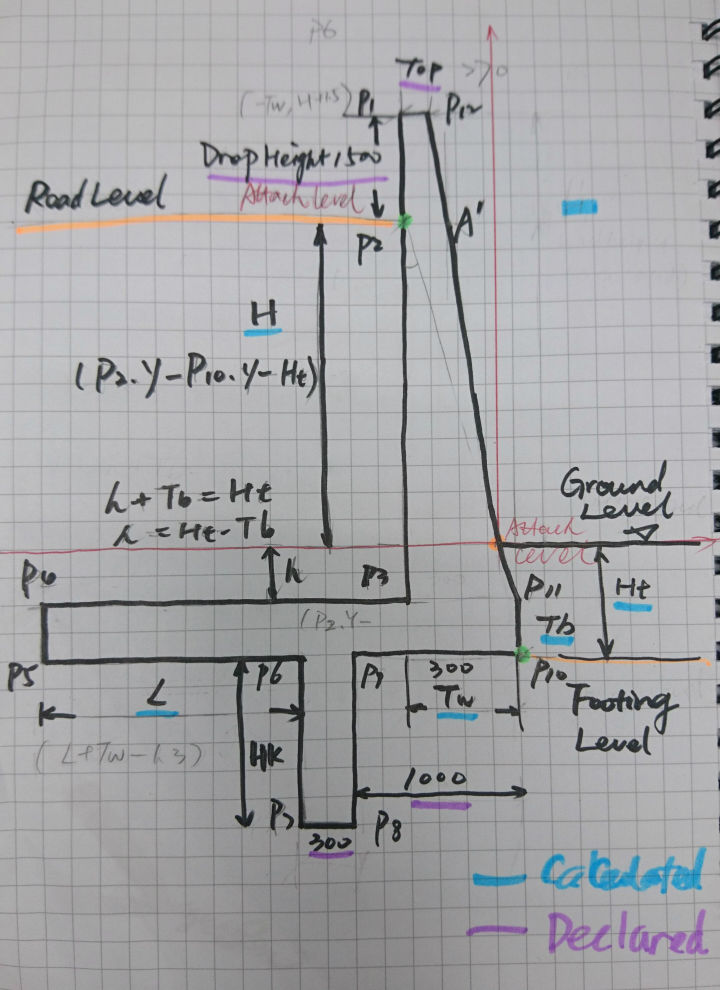 P6
Top >>0
(-Tw, H+1.5) P1 P12
Drop Height 1500
Road Level Attach level
P2 A'
H
(P2.Y-P10.Y-Ht)
h+Tb=Ht
h=Ht-Tb
Ground
Level
Attach
Level
P4 h P3 P11 Ht
(P2.Y- Tb
P5 P6 P9 300 P10
L Tw Footing
Level
(L+Tw-1.3) HK
1000
P7 300 P8
Calculated
Declared